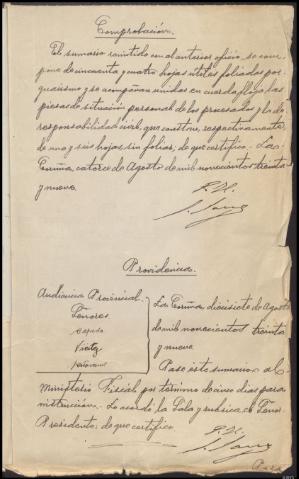 Comprobación.
El sumario remitido con el anterior oficio, se com-
pone de cincuenta y cuatro hojas útiles foliadas por
guarismo y se acompañan unidas en cuerda floja las
piezas de situación personal de los procesados y la de
responsabilidad civil, que constan, respectivamente
de una y seis hojas sin foliar; de que certifico.- La
Coruña catorce de Agosto de mil novecientos treinta
y nueve.
Providencia.
Audiencia Provincial.
Señores
La Coruña diecisiete de Agosto
de mil novecientos treinta
y nueve
Pase este sumario al
Ministerio Fiscal por término de cinco días para
instrucción.- Lo acordó la Sala y rubrica el Señor
Presidente; de que certifico.